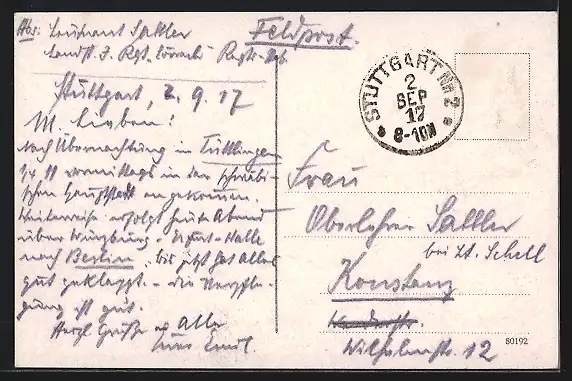 Abs: Leutnant Sattler
Landst. I. Regt. Lörrach Regts-Stab
Feldpost.
STUTTGART Nr. 2
2
SEP
17
8-10N
Stuttgart, 2.9.17
M. Lieben!
Nach Übernachtung in Tuttlingen
1/4 11 vormittags in der schwäbi-
schen Hauptstadt angekommen.
Weiterreise erfolgt heute Abend
über Würzburg - Erfurt - Halle
nach Berlin. bis jetzt hat alles
gut geklappt. - die Verpfle-
gung ist gut.
Herzl Grüße an alle
Euer Emil.
Frau
Oberlehrer Sattler
bei Lt. Schell
Konstanz
Wilhelmstr. 12
80192